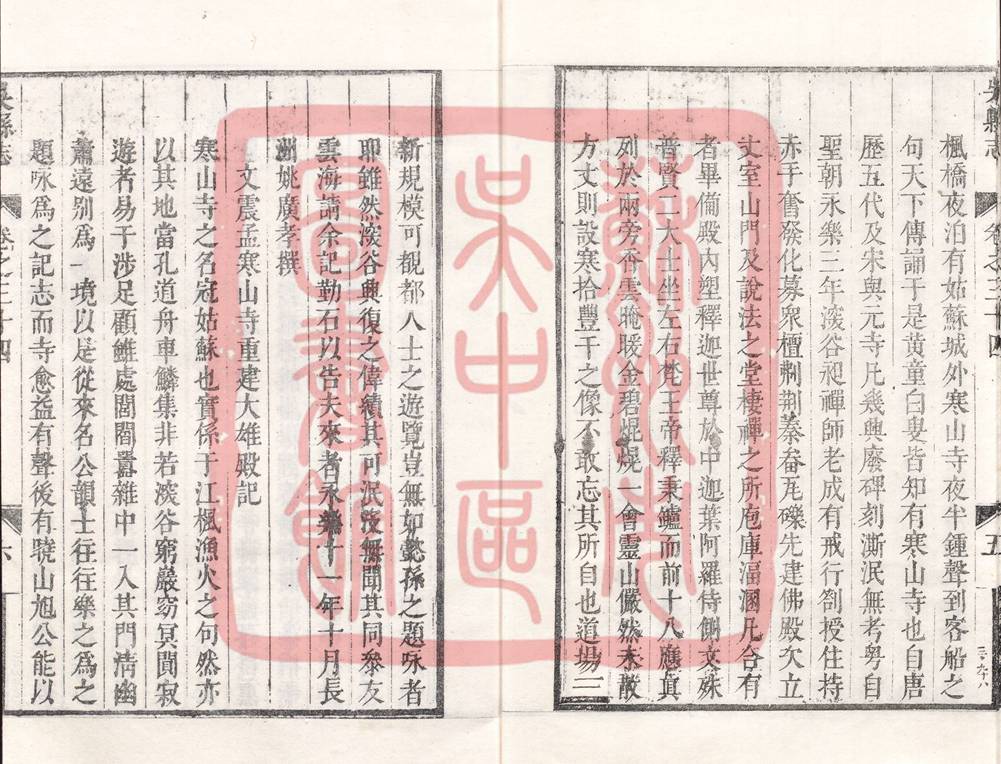 吳縣志
卷之三十四
五
楓橋夜泊有姑蘇城外寒山寺夜半鍾聲到客船之
句天下傳誦于是黄童白叟皆知有寒山寺也自唐
歷五代及宋與元寺凡幾興廢碑刻澌泯無考粤自
聖朝永樂三年深谷昶禪師老成有戒行劄授住持
赤手奮發化募衆檀剃荆蓁畚瓦礫先建佛殿次立
丈室山門及說法之堂棲禪之所庖庫湢溷凡合有
者畢備殿内塑釋迦世尊於中迦葉阿羅侍側文殊
普賢二大士坐左右梵王帝釋秉鑪而前十八應真
列於兩旁香雲晻靉金碧焜煌一會靈山儼然未散
方丈則設寒拾豐干之像不敢忘其所自也道場三
新規模可覩都人士之遊覽豈無如懿孫之題咏者
耶雖然深谷興復之偉績其可泯没無聞其同叅友
雲海請余記勒石以告夫來者永樂十一年十月長
洲姚廣孝撰
文震孟寒山寺重建大雄殿記
寒山寺之名冠姑蘇也實係于江楓漁火之句然亦
以其地當孔道舟車鱗集非若深谷窮巖窈冥閴寂
遊者易于涉足顧雖處閭閻囂雜中一入其門清幽
蕭遠别爲一境以是從來名公韻士往往樂之爲之
題咏爲之記志而寺愈益有聲後有曉山旭公能以
吳縣志
卷之三十四
六
蘇州市
吳中區
圖書館